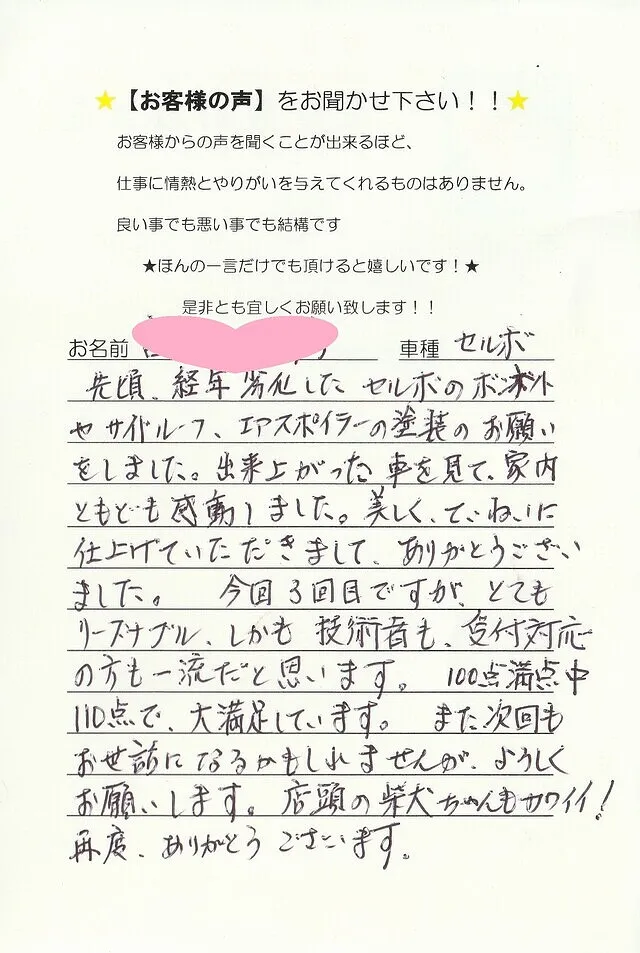 ★【お客様の声】をお聞かせ下さい！！★
お客様からの声を聞くことが出来るほど、
仕事に情熱とやりがいを与えてくれるものはありません。
良い事でも悪い事でも結構です
★ほんの一言だけでも頂けると嬉しいです！★
是非とも宜しくお願い致します！！
お名前 車種 セルボ
先頃、経年劣化したセルボのボンネット
やサイドルーフ、エアスポイラーの塗装のお願い
をしました。出来上がった車を見て、家内
ともども感動しました。美しく、ていねいに
仕上げていただきまして、ありがとうござい
ました。 今回3回目ですが、とても
リーズナブル、しかも技術者も、受付対応
の方も一流だと思います。 100点満点中
110点で、大満足しています。 また次回も
お世話になるかもしれませんが、よろしく
お願いします。店頭の柴犬ちゃんもカワイイ！
再度、ありがとうございます。